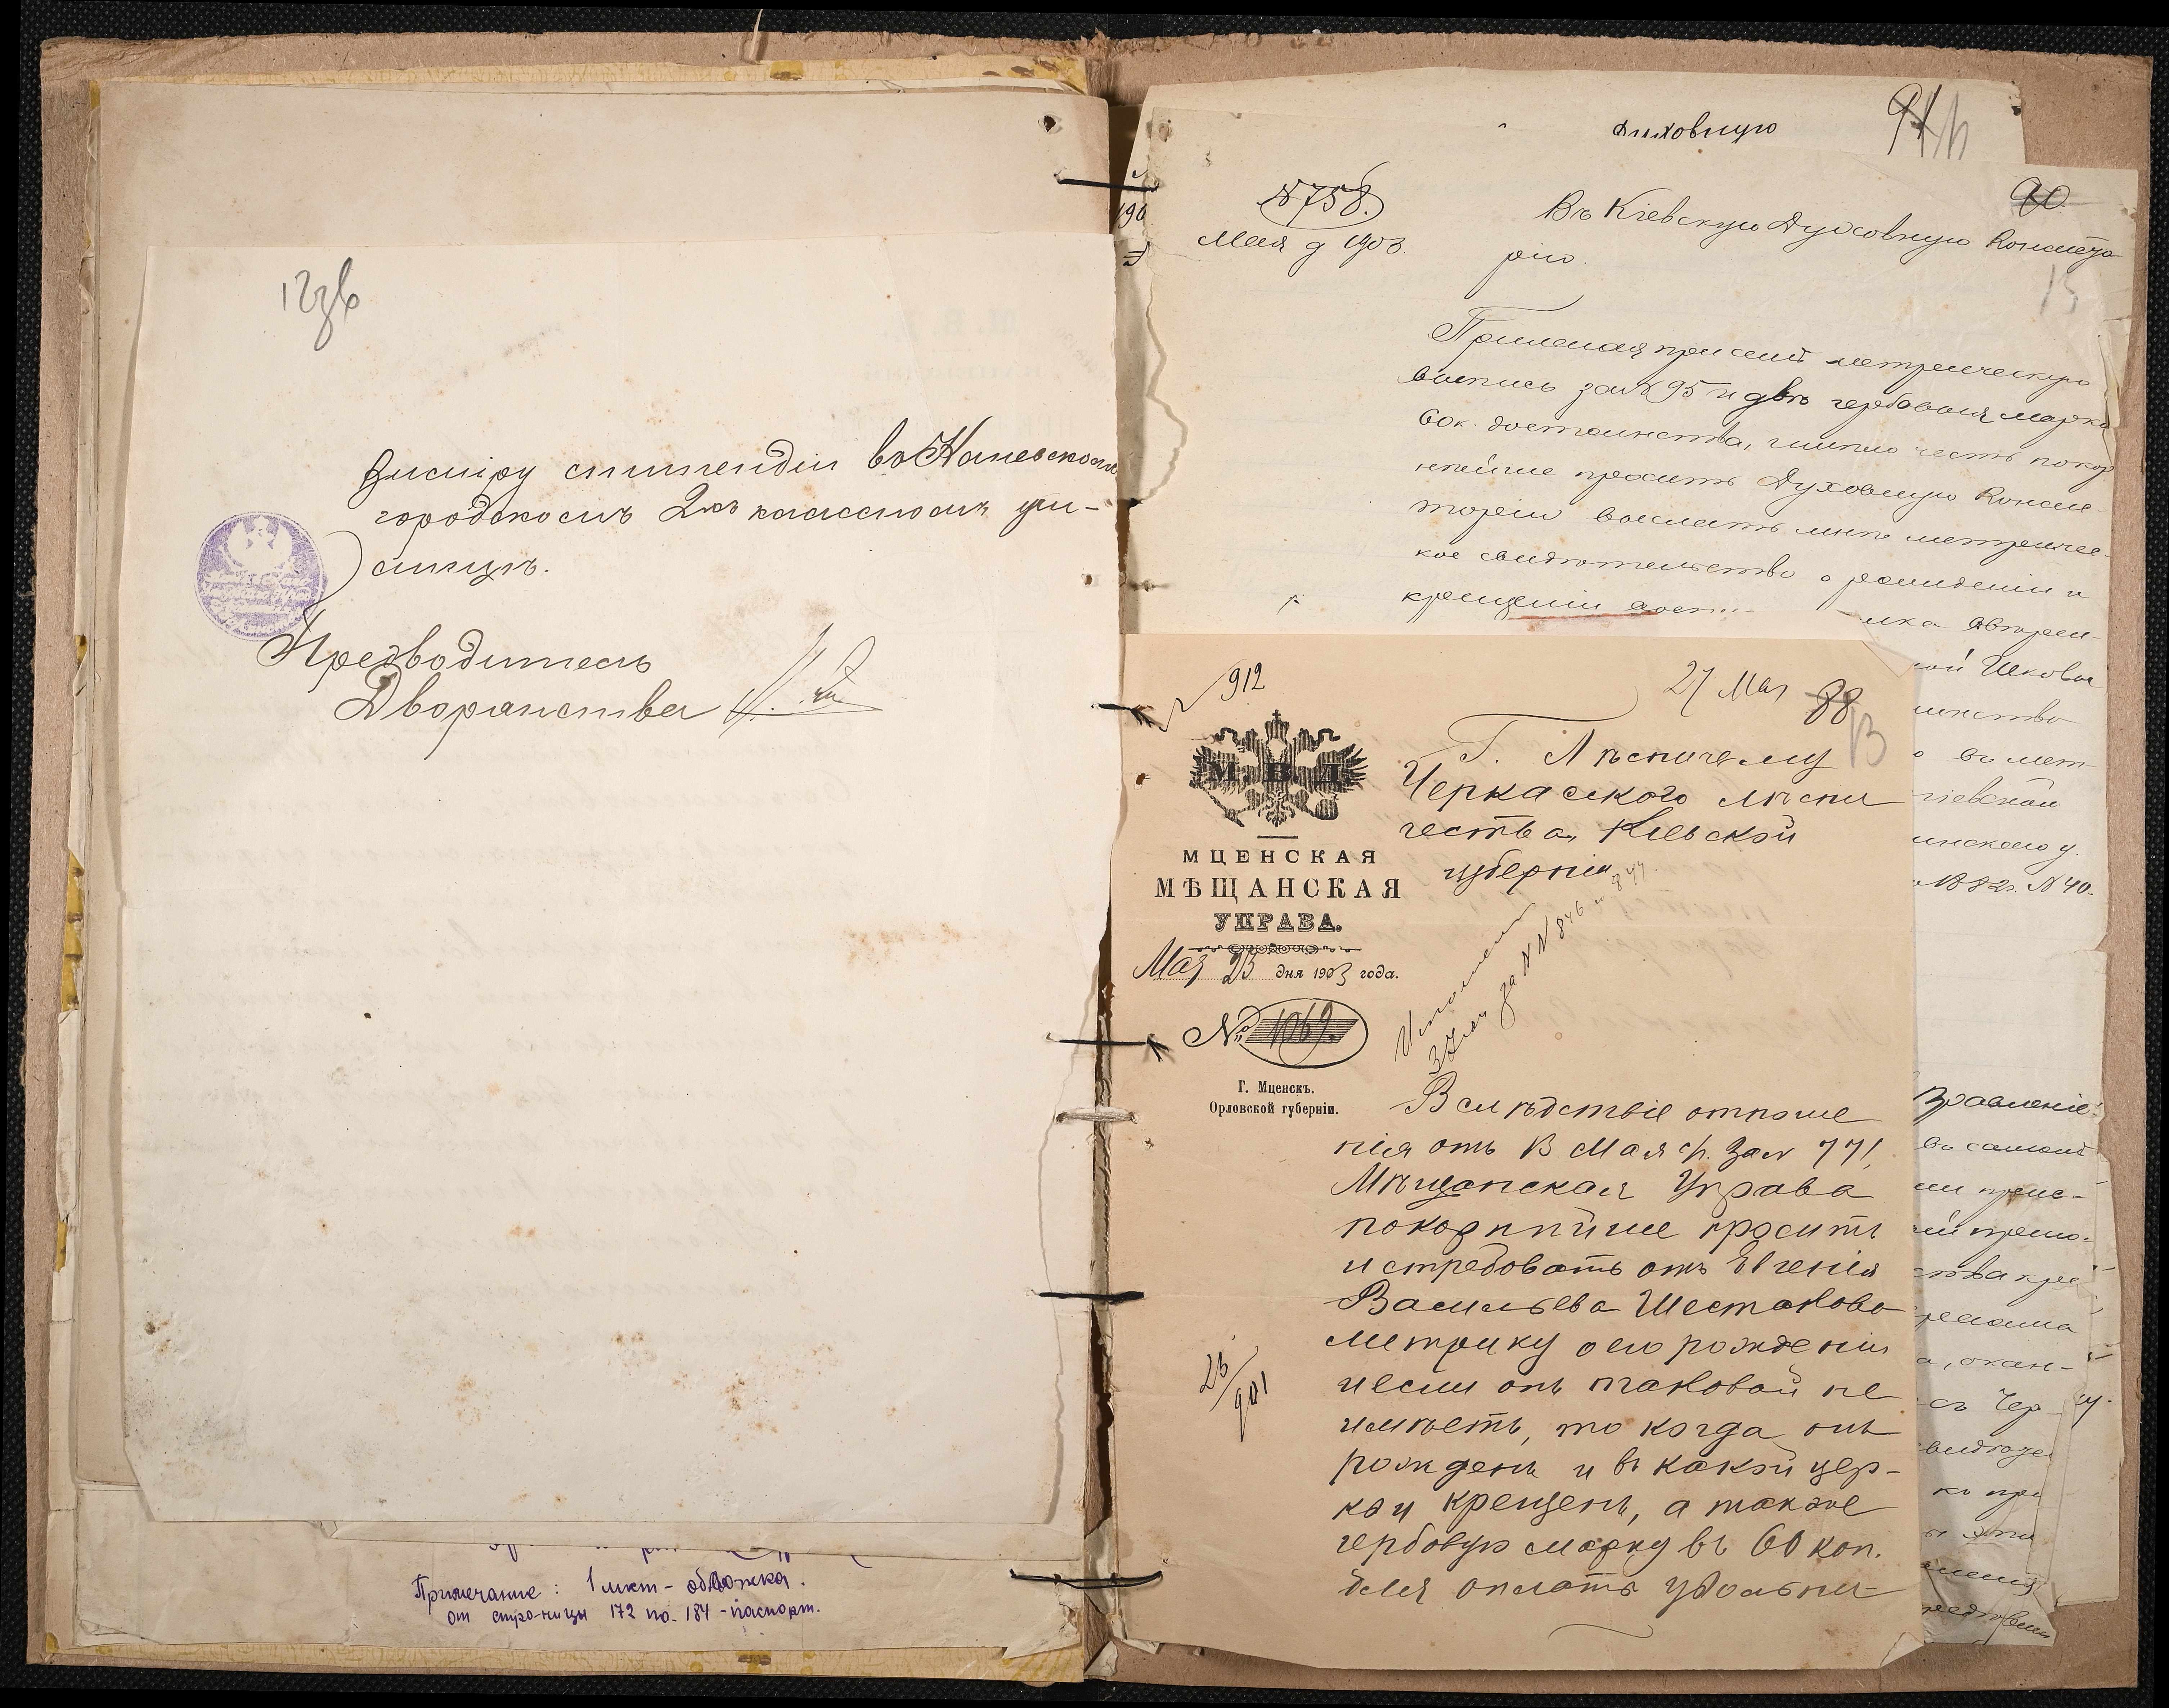 12зв
стипендіи въ Каневскомъ
городскомъ 2хъ классномъ учи-
лищѣ.
Предводитель
Дворянства
Примечание: 1 лист - обложка.
от страницы 172 по 184 - паспорт.
190
Духовную
94
№ 758.
Мая 9 1903.
90
Въ Кіевскую Духовную Консисто
рію.
13
Прилагая при семъ метрическую
выпись за № 95 и двѣ гербовыя марки
60 к. достоинства, имѣю честь покор
нѣйше просить Духовную Консис
торію выслать мнѣ метричес-
кое свидѣтельство о рожденіи и
крещеніи
912
27 Мая 88
13
М. В. Д.
МЦЕНСКАЯ
МѢЩАНСКАЯ
УПРАВА.
Мая 23 дня 1903 года.
№ 1069.
Г. Мценскъ.
Орловской губерніи.
Г. Лѣсничему
Черкасского лѣсни
чества, Кіевской
губерніи
за №№ 846 и 847.
Вслѣдствіе отноше
нія отъ 13 Мая с/г. за № 771,
Мѣщанская Управа
покорнѣйше проситъ
истребовать отъ Евгенія
Васильева Шестакова
метрику о его рожденіи
и если онъ таковой не
имѣетъ, то когда онъ
рожденъ и въ какой цер-
кви крещенъ, а также
гербовую марку въ 60 коп.
для оплаты увольни-
23/901
въ мет-
1882 г. № 40.
въ самомъ
а, окан-
съ Чер